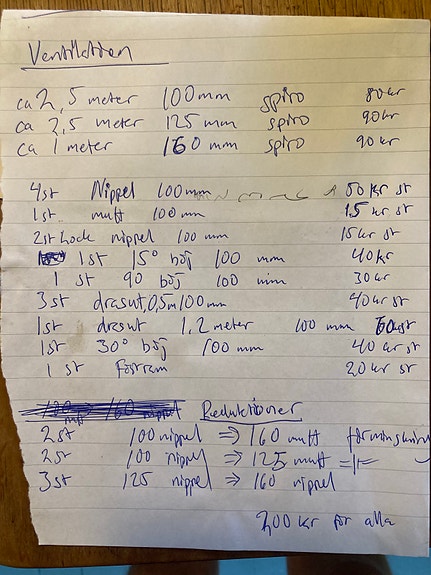 Ventilation
ca 2,5 meter 100 mm spiro 80 kr
ca 2,5 meter 125 mm spiro 90 kr
ca 1 meter 160 mm spiro 90 kr
4st Nippel 100 mm 50 kr st
1st muff 100 mm 15 kr st
2st Lock nippel 100 mm 15 kr st
1st 15° böj 100 mm 40 kr
1 st 90 böj 100 mm 30 kr
3 st 0,5m 100 mm 40 kr st
1st 1,2 meter 100 mm 60 kr st
1st 30° böj 100 mm 40 kr st
1 st 20 kr st
Reduktioner
2st 100 nippel ⇒ 160 muff
2st 100 nippel ⇒ 125 muff
3st 125 nippel ⇒ 160 nippel
200 kr för alla